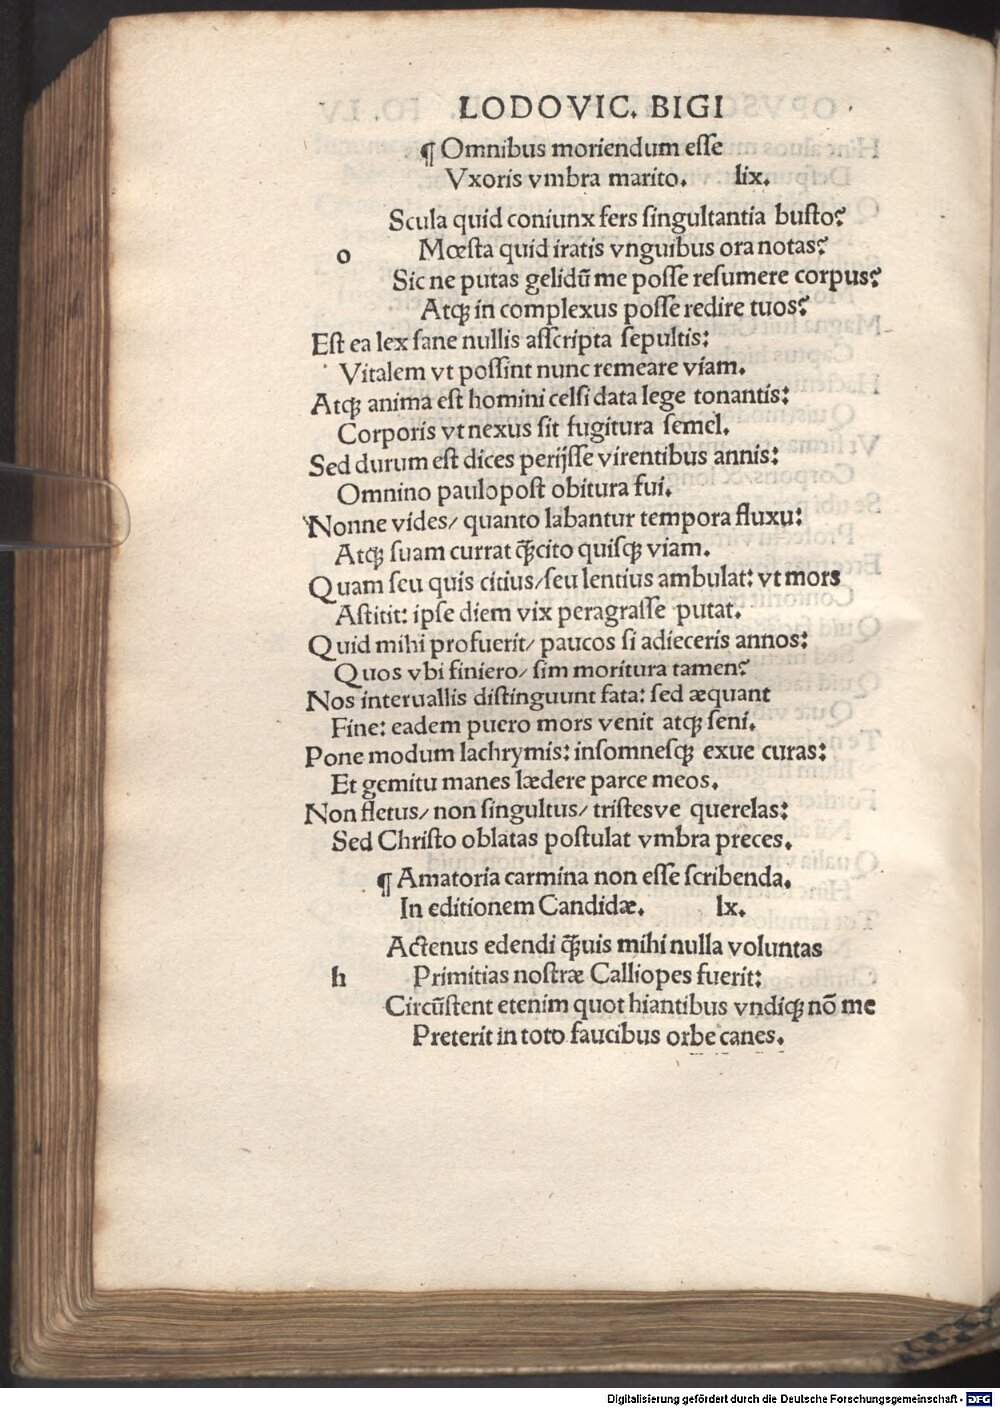 LODOVIC. BIGI
¶ Omnibus moriendum esſe
Vxoris vmbra marito. lix.
Scula quid coniunx fers ſingultantia buſto?
o Mœſta quid iratis vnguibus ora notas?
Sic ne putas gelidū me poſſe reſumere corpus?
Atqꝫ in complexus poſſe redire tuos?
Eſt ea lex ſane nullis aſſcripta ſepultis:
Vitalem vt poſſint nunc remeare viam.
Atqꝫ anima eſt homini celſi data lege tonantis:
Corporis vt nexus ſit fugitura ſemel.
Sed durum eſt dices perijſſe virentibus annis:
Omnino paulopoſt obitura fui.
Nonne vides/ quanto labantur tempora fluxu:
Atqꝫ ſuam currat qͣꝫcito quiſqꝫ viam.
Quam ſeu quis citius/ſeu lentius ambulat: vt mors
Aſtitit: ipſe diem vix peragraſſe putat.
Quid mihi profuerit/ paucos ſi adieceris annos:
Quos vbi finiero/ ſim moritura tamen?
Nos interuallis diſtinguunt fata: ſed æquant
Fine: eadem puero mors venit atqꝫ ſeni.
Pone modum lachrymis: inſomneſqꝫ exue curas:
Et gemitu manes lædere parce meos.
Non fletus/ non ſingultus/ triſtesve querelas:
Sed Chriſto oblatas poſtulat vmbra preces.
¶ Amatoria carmina non eſſe ſcribenda.
In editionem Candidæ. lx.
Actenus edendi qͣꝫuis mihi nulla voluntas
h Primitias noſtræ Calliopes fuerit:
Circūſtent etenim quot hiantibus vndiqꝫ nō me
Preterit in toto faucibus orbe canes.
Digitalisierung gefördert durch die Deutsche Forschungsgemeinschaft - DFG